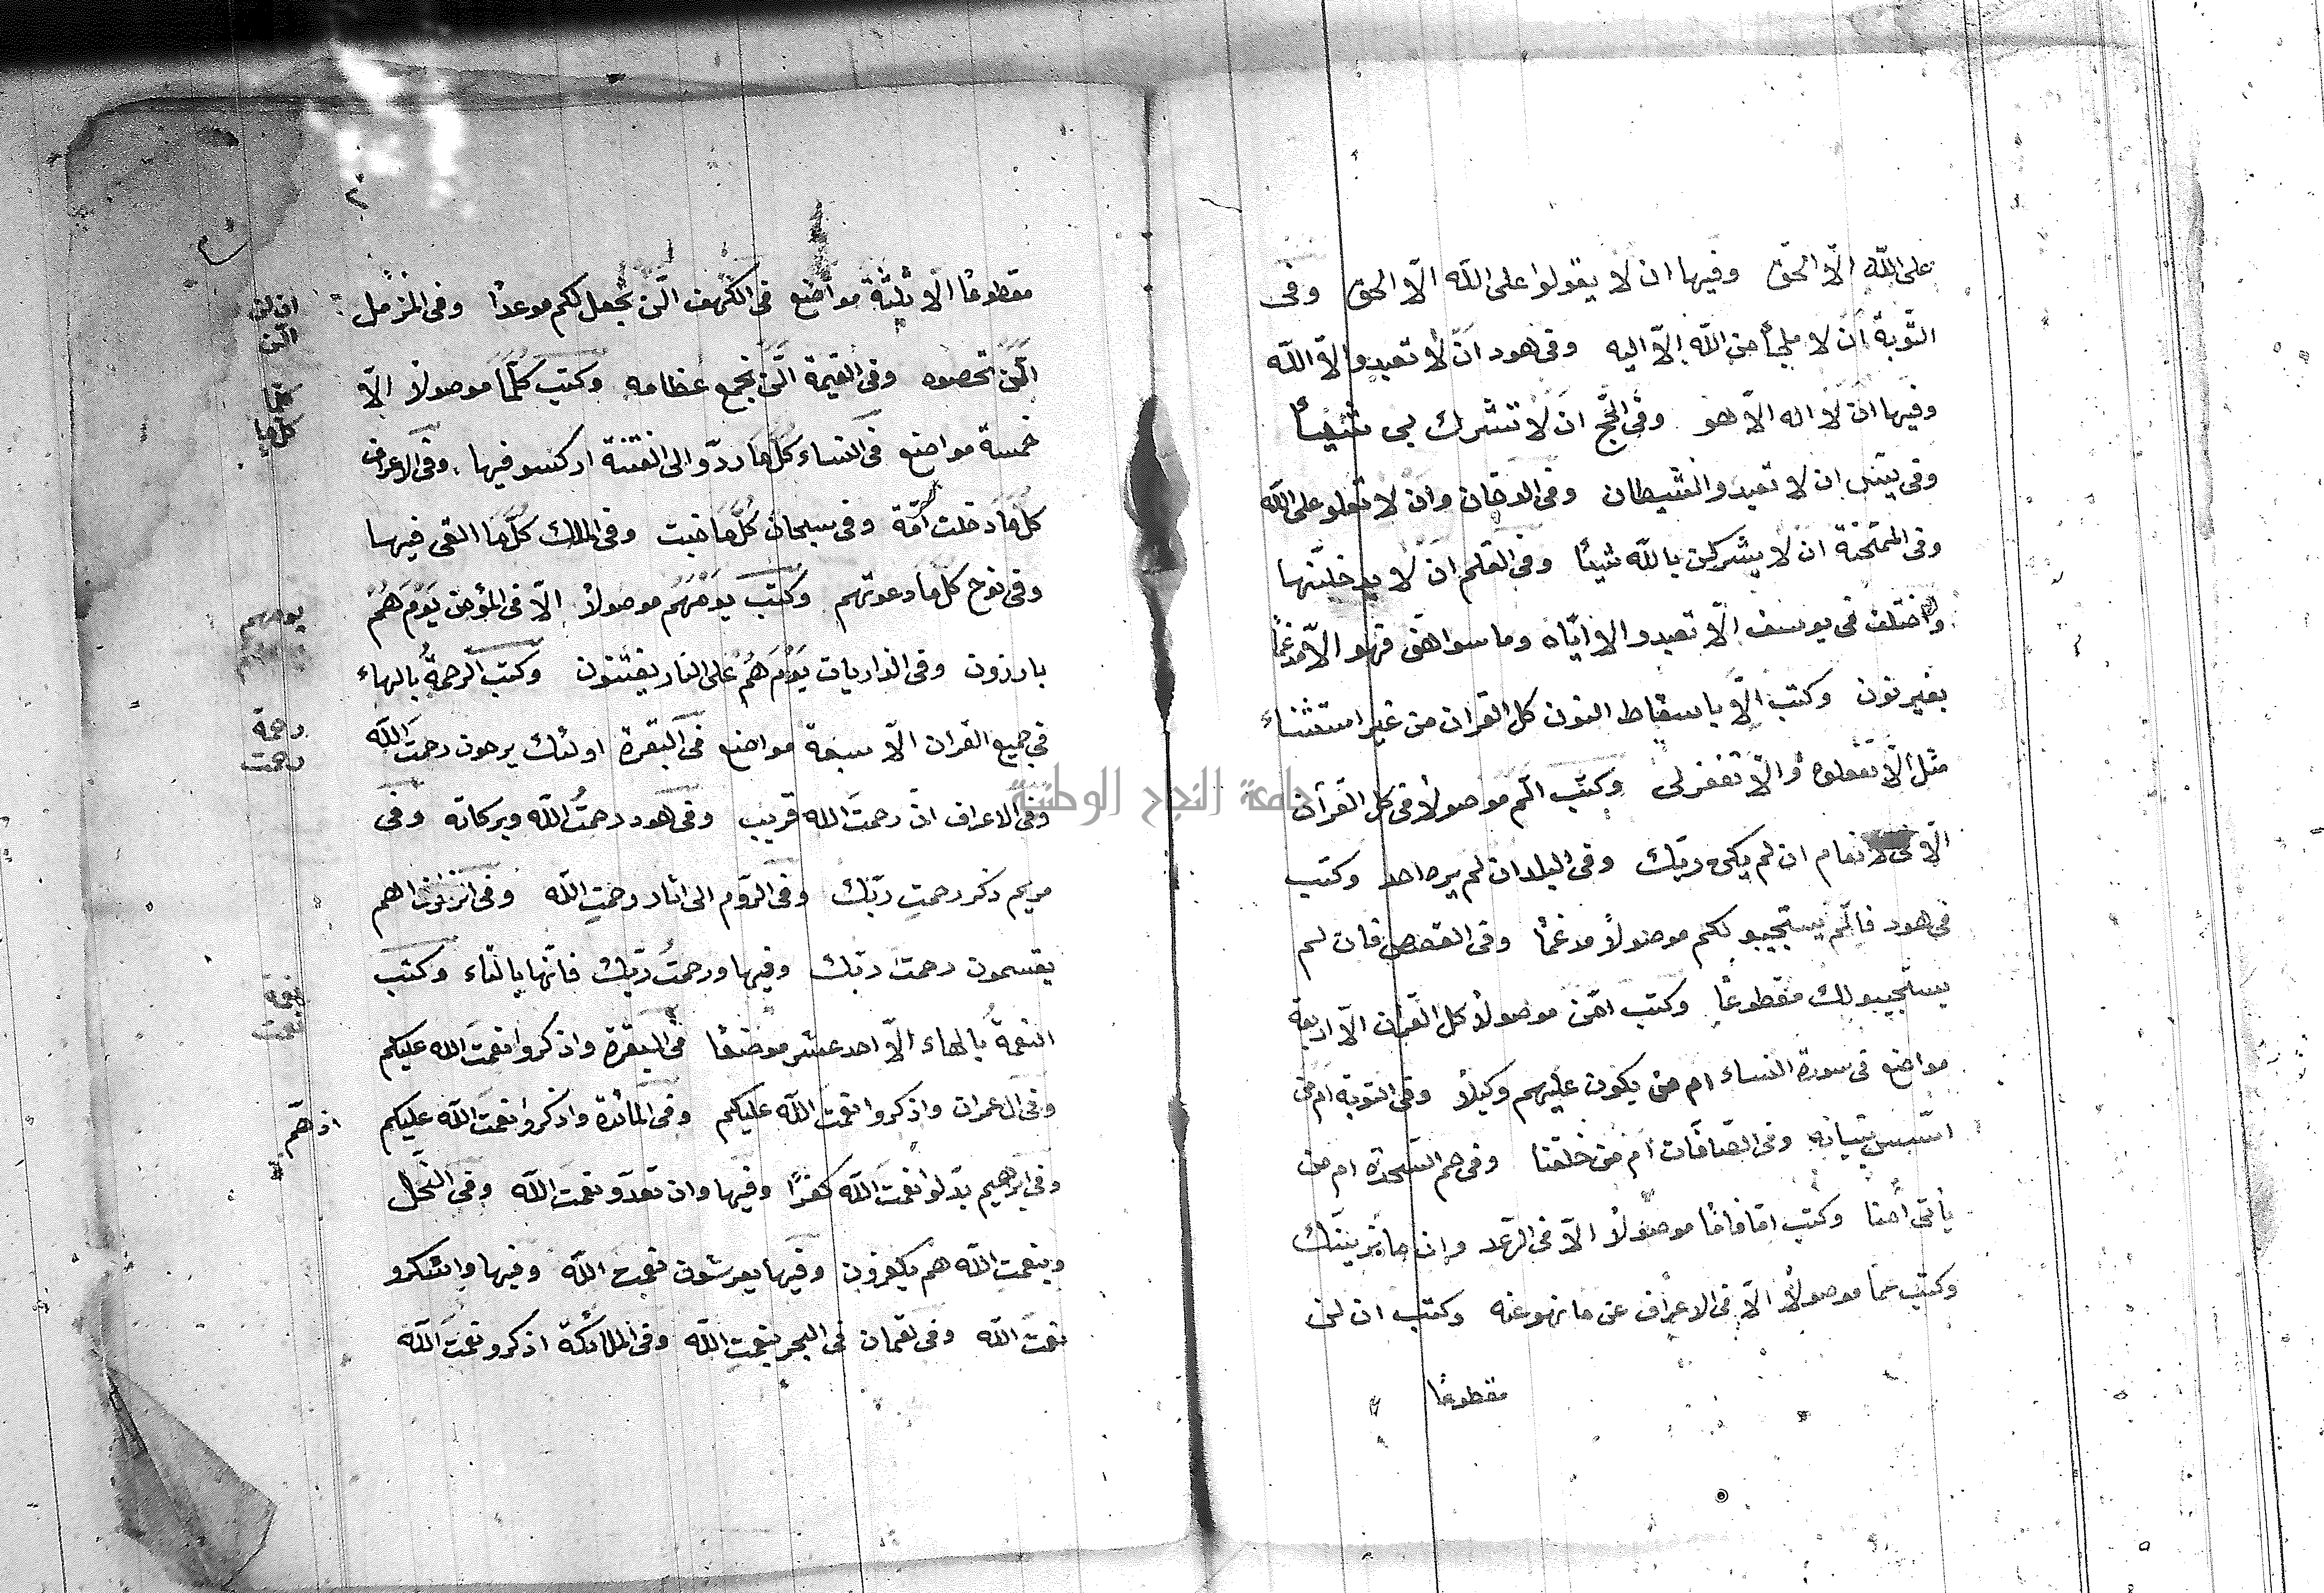 على الله الّا الحق وفيها ان لا يقولوا على الله الّا الحق وفى
التّوبة ان لا ملجأ من الله إلّا اليه وفى هود ان لا تعبدوا الّا الله
وفيها ان لا اله الّا هو وفى الحّج ان لا تشرك بى شيئاً
وفى يس ان لا تعبدوا الشيطان وفى الدخان وان لا تعلو على الله
وفى الممتحنة ان لا يشركن بالله شيئا وفى القلم ان لا يدخلنّها
واختلف فى يوسف الّا تعبدوا الا ايّاه وما سواهن فهو الّا مدغماً
بغير نون وكتب الّا باسقاط النون كل القران من غير استثناء
مثل الّا تفعلوه والّا تغفرلى وكتب الّم موصولاً فى كل القرآن
الّا فى الانعام ان لم يكن ربّك وفى البلد ان لم يره احد وكتب
فى هود فالّم يستجيبو لكم موصولاً مدغمًا وفى القصص فان لم
يستجيبو لك مقطوعًا وكتب امّن موصولاً كل القران الّا اربعة
مواضع فى سورة النساء ام من يكون عليهم وكيلاً وفى التوبة ام من
اسّس بنيانه وفى الصّافّات ام من خلقنا وفى حم السّجدة ام من
يأتى امنا وكتب امّا فامّا موصولاً الّا فى الرّعد وان ما نرينّك
وكتب عمّا موصولاً الّا فى الاعراف عن ما نهو عنه وكتب ان لن
مقطوعًا
مقطوعًا الّا ثلثة مواضع فى الكهف الّن نجعل لكم موعدًا وفى المزمل
الّن تحصوه وفى القيمة الّن نجمع عظامه وكتب كلّما موصولاً الّا
خمسة مواضع فى النساء كل ما ردّو الى الفتنة اركسو فيها وفى الاعراف
كل ما دخلت امّة وفى سبحان كلّ ما خبت وفى الملك كلّ ما القى فيها
وفى نوح كل ما دعوتهم وكتب يومهم موصولاً الّا فى المؤمن يوم هم
بارزون وفى الذاريات يوم هم على النار يفتنون وكتب الرحمة بالهاء
فى جميع القران الّا سبعة مواضع فى البقرة اولئك يرجون رحمت الله
وفى الاعراف انّ رحمت الله قريب وفى هود رحمت الله وبركاته وفى
مريم ذكر رحمت ربّك وفى الرّوم الى اثار رحمت الله وفى الزخرف اهم
يقسمون رحمت ربّك وفيها ورحمت ربّك فانّها بالتاء وكتب
النعمة بالهاء الّا احد عشر موضعًا فى البقرة واذكروا نعمت الله عليكم
وفى ال عمران واذكروا نعمت الله عليكم وفى المائدة واذكروا نعمت الله عليكم
وفى ابرهيم بدّلوا نعمت الله كفرًا وفيها وان تعدّو نعمت الله وفى النّحل
وبنعمت الله هم يكفرون وفيها يعرفون نعمت الله وفيها واشكرو
نعمت الله وفى لقمان فى البحر بنعمت الله وفى الملائكة اذكرو نعمت الله
ان لن
الّن
كلما
كل ما
يومهم
رحمة
رحمت
نعمة
نعمت
اذ همّ
جامعة النجاح الوطنية